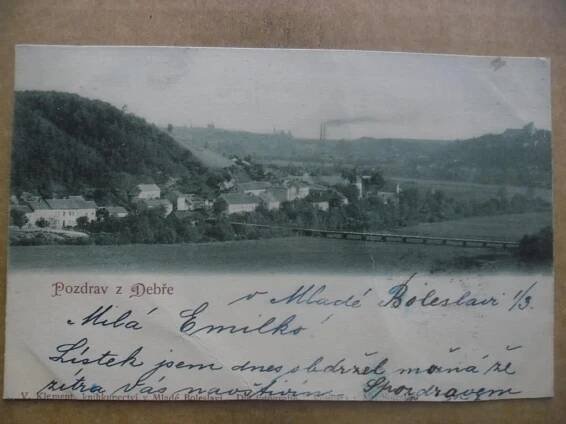 Pozdrav z Debře
v Mladé Boleslavi 1/3.
Milá Emilko!
Lístek jsem dnes obdržel možná že
zítra Vás navštívím. S pozdravem
V. Klement, knihkupectví v Mladé Boleslavi.